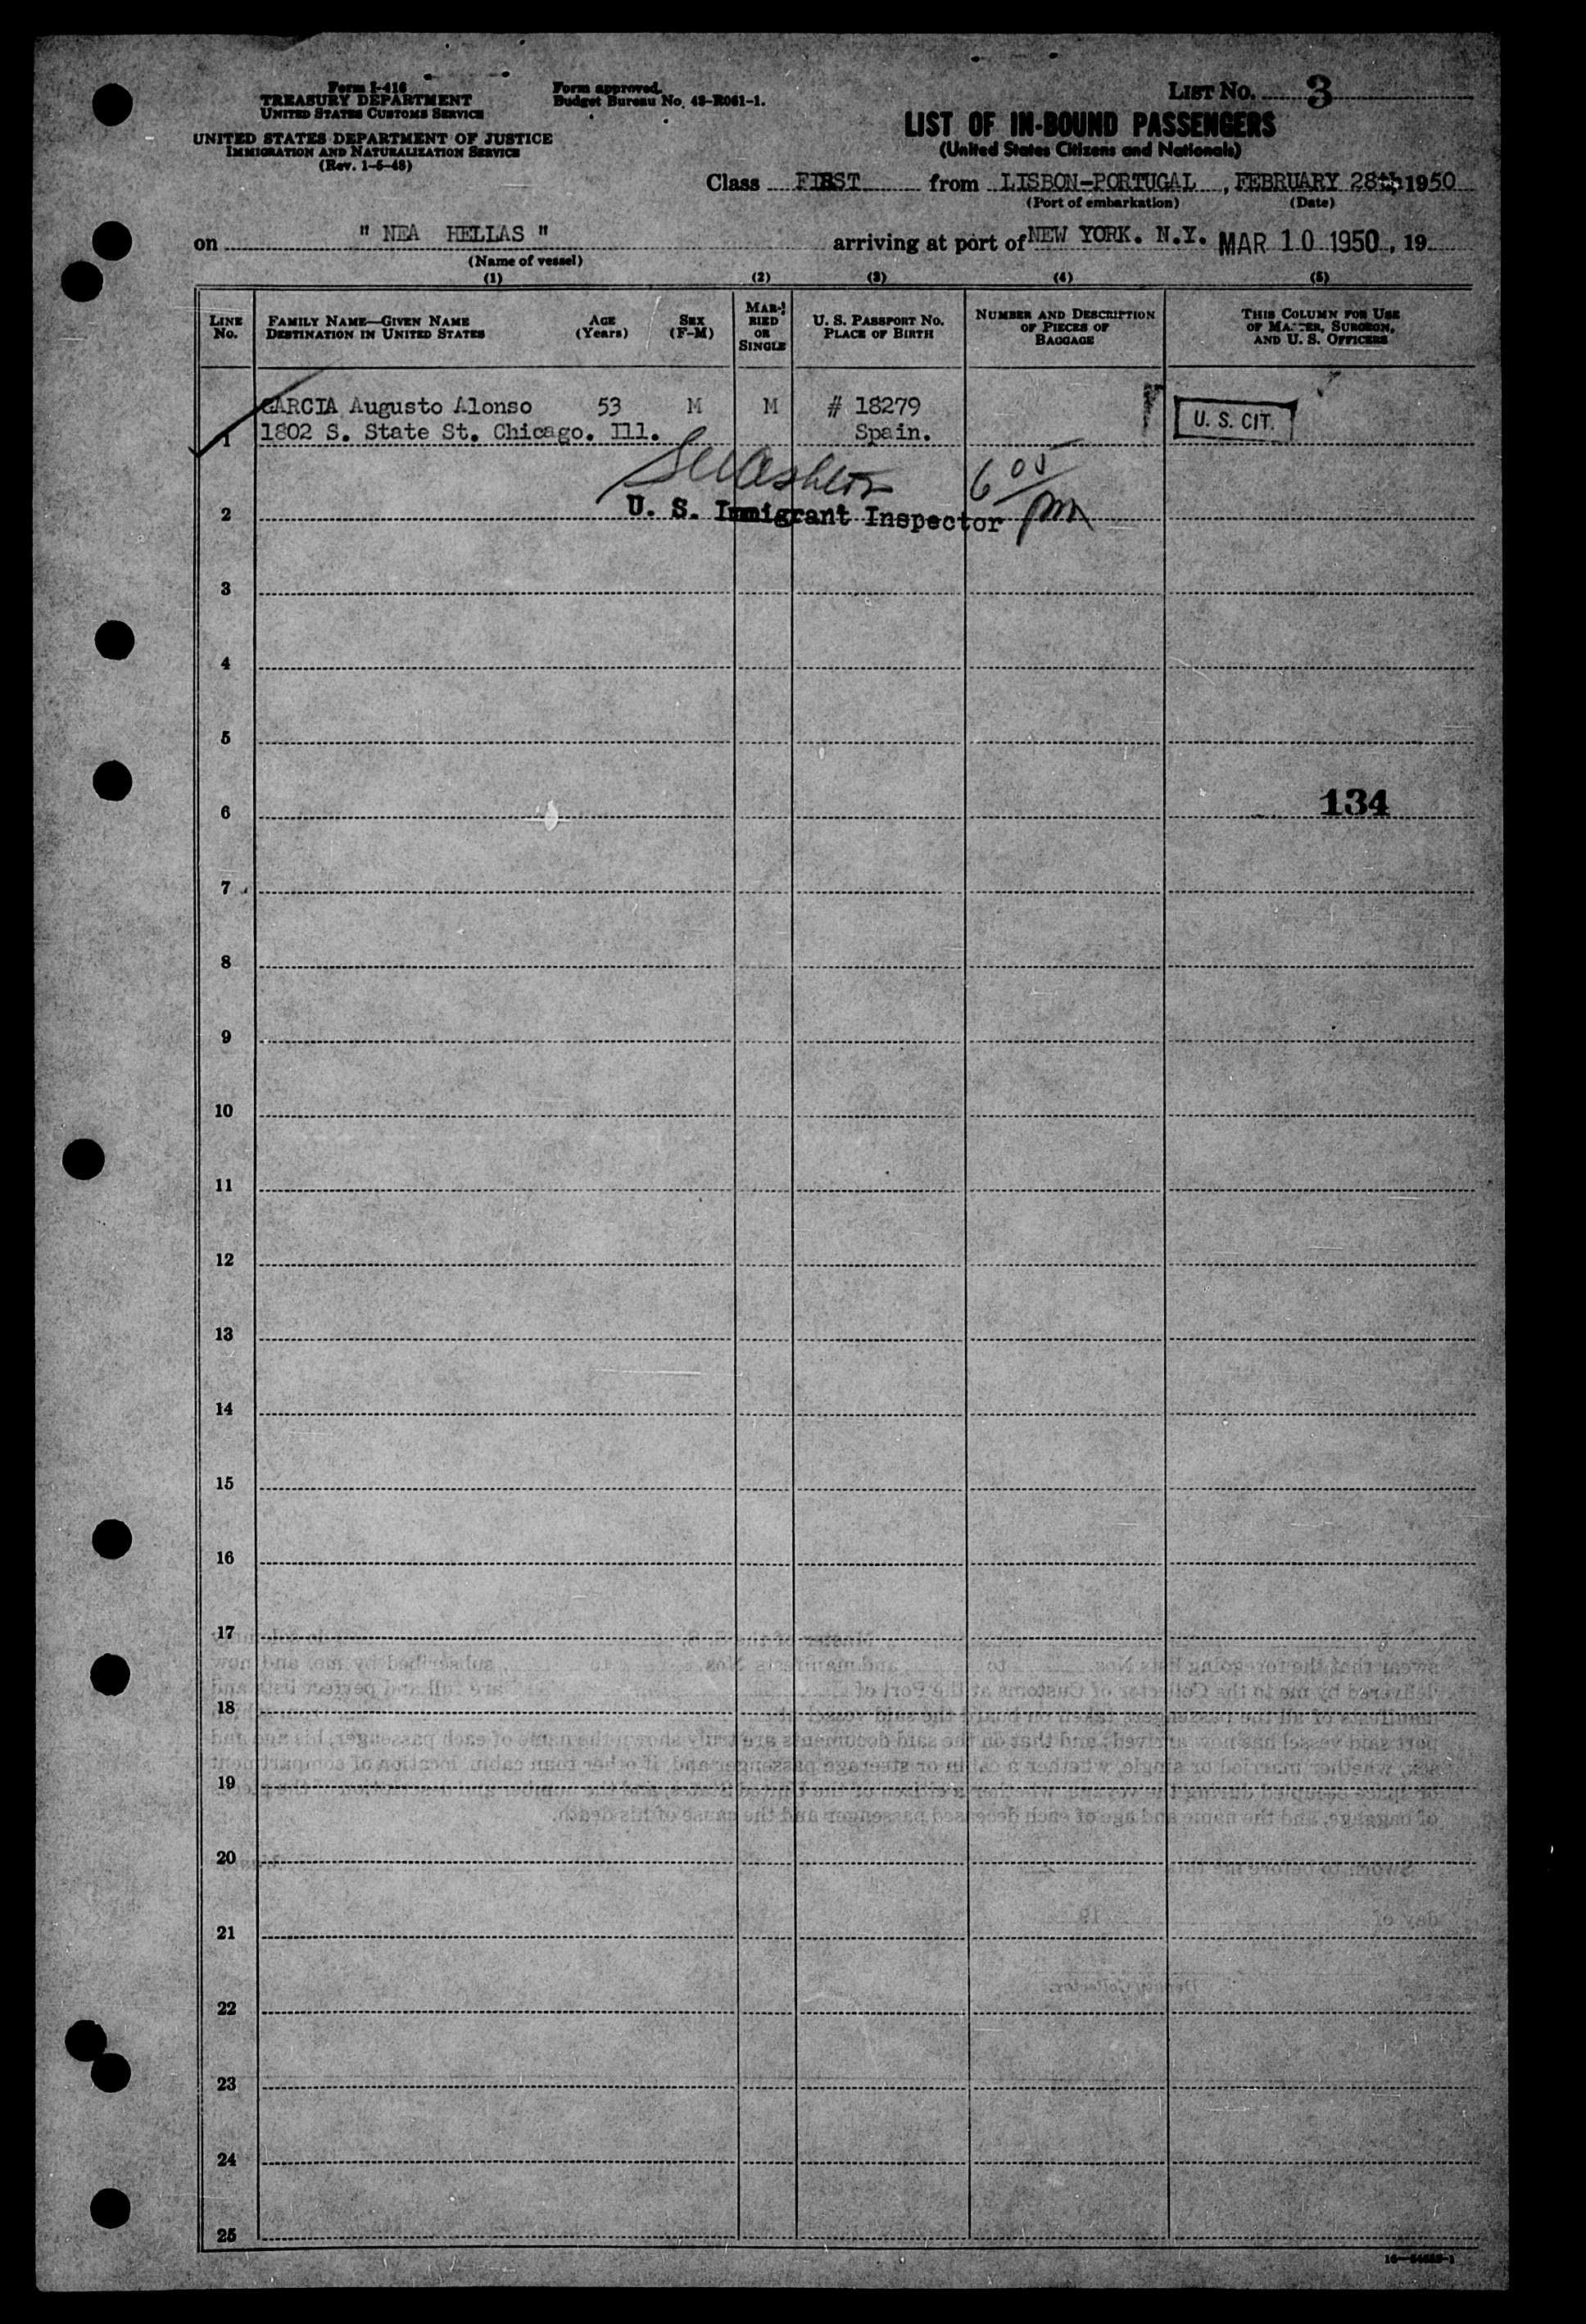 Form I-416
TREASURY DEPARTMENT
UNITED STATES CUSTOMS SERVICE
UNITED STATES DEPARTMENT OF JUSTICE
IMMIGRATION AND NATURALIZATION SERVICE
(Rev. 1-5-48)
Form approved.
Budget Bureau No. 43-R061-1.
LIST NO. 3
LIST OF IN-BOUND PASSENGERS
(United States Citizens and Nationals)
Class FIRST from LISBON-PORTUGAL, FEBRUARY 28th 1950
(Port of embarkation) (Date)
on " NEA HELLAS " arriving at port of NEW YORK. N.Y. MAR 10 1950, 19
(Name of vessel)
(1) (2) (3) (4) (5)
LINE NO. FAMILY NAME—GIVEN NAME DESTINATION IN UNITED STATES AGE (Years) SEX (F-M) MARRIED OR SINGLE U. S. PASSPORT NO. PLACE OF BIRTH NUMBER AND DESCRIPTION OF PIECES OF BAGGAGE THIS COLUMN FOR USE OF MASTER, SURGEON, AND U. S. OFFICERS
GARCIA Augusto Alonso 53 M M # 18279 U. S. CIT.
1 1802 S. State St. Chicago. Ill. Spain.
6 05 pm
2 U. S. Immigrant Inspector
3
4
5
6 134
7
8
9
10
11
12
13
14
15
16
17
18
19
20
21
22
23
24
25